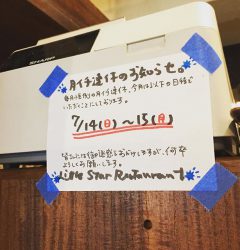 SHARP
月イチ連休のお知らせ。
毎月恒例の月イチ連休、今月は以下の日程で
いただくことにしております。
7/14(日)〜15(月)
皆さんには御迷惑をおかけしますが、何卒
よろしくお願いします。
Little Star Restaurant